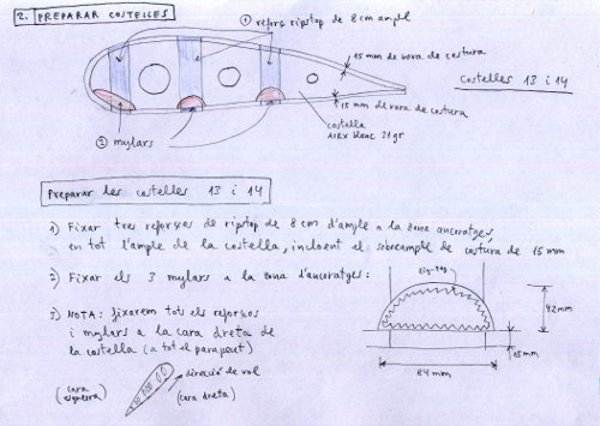 2. PREPARAR COSTELLES
① reforç ripstop de 8cm ample
15 mm de vora de costura
Costelles 13 i 14
15 mm de vora de costura
costella
AIRX blanc 21gr
② mylars
Preparar les costelles 13 i 14
1) Fixar tres reforços de ripstop de 8cm d'ample a la zona ancoratges,
en tot l'ample de la costella, incloent el sobreample de costura de 15mm
2) Fixar els 3 mylars a la zona d'ancoratges:
zig-zag
42mm
15mm
84mm
3) NOTA: fixarem tots els reforços
i mylars a la cara dreta de
la costella (a tot el parapent)
direcció de vol
(cara esquerra)
(cara dreta)